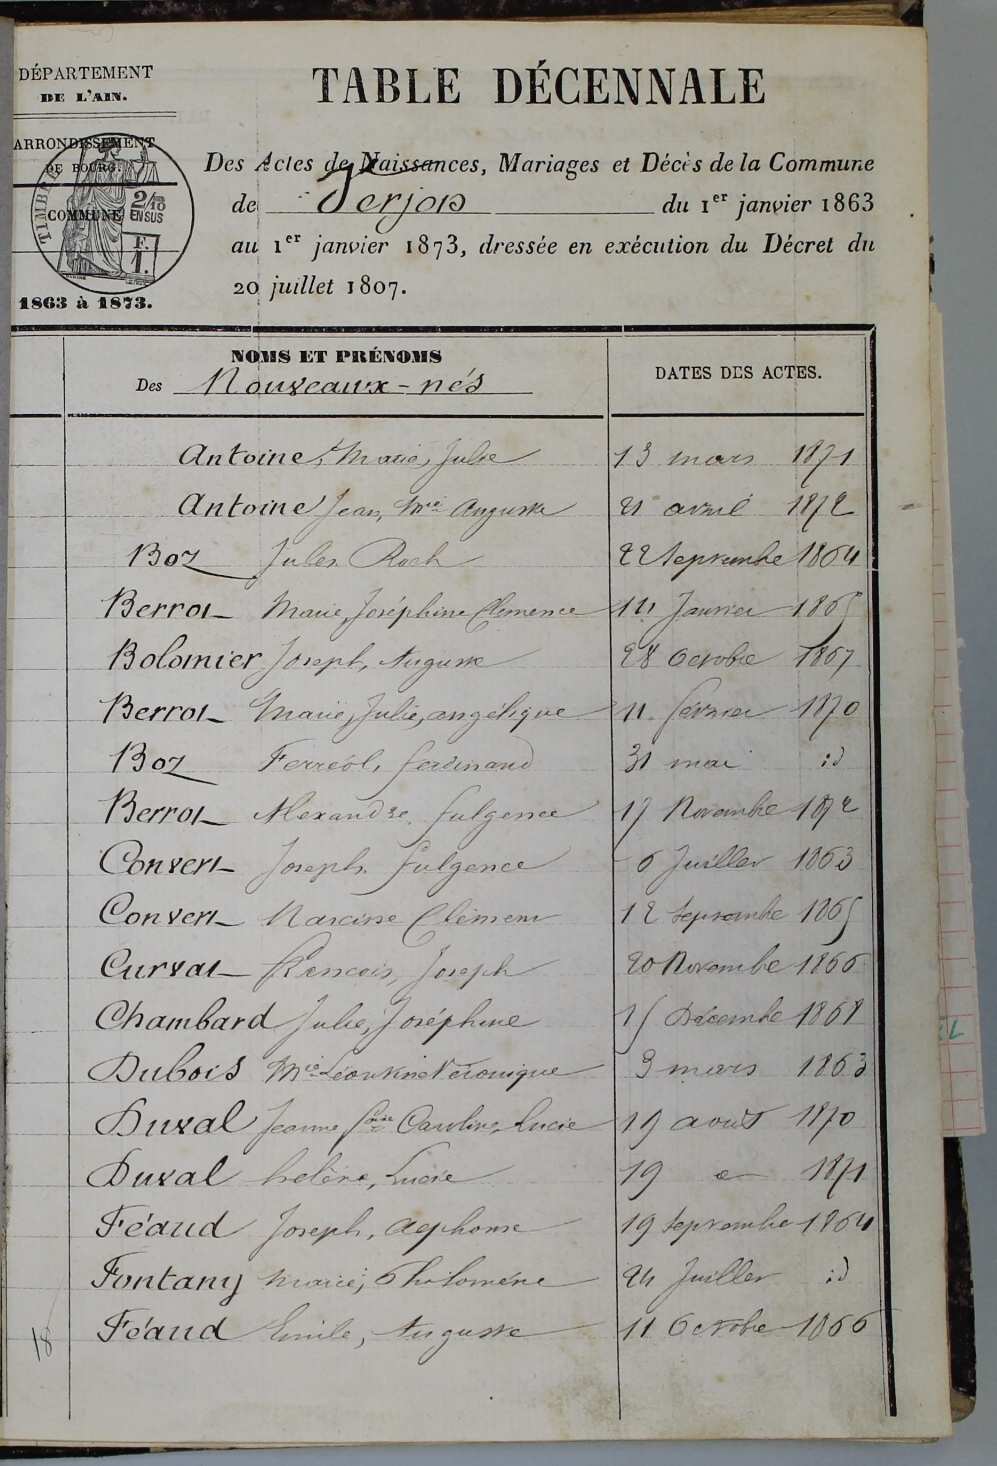 DÉPARTEMENT
DE L'AIN.
ARRONDISSEMENT
DE BOURG.
COMMUNE
1863 à 1873.
TIMBRE
2/10
EN SUS
F.
1.
TABLE DÉCENNALE
Des Actes de Naissances, Mariages et Décès de la Commune
de Verjon du 1er janvier 1863
au 1er janvier 1873, dressée en exécution du Décret du
20 juillet 1807.
NOMS ET PRÉNOMS
Des Nouveaux-nés
DATES DES ACTES.
Antoine, Marie, Julie 13 mars 1871
Antoine Jean, Mie Auguste 21 avril 1872
Boz Jules Roch 22 Septembre 1864
Berrot Marie, Joséphine Clémence Janvier 1865
Bolomier Joseph, Auguste 28 Octobre 1867
Berrot Marie, Julie, angélique 11 février 1870
Boz Ferréol, ferdinand 31 mai id
Berrot Alexandre fulgence 17 Novembre 1872
Convert Joseph fulgence 6 Juillet 1863
Convert Narcisse Clément 12 Septembre 1865
Curvat François, Joseph 20 Novembre 1866
Chambard Julie, Joséphine 15 Décembre 1868
Dubois Mie Léontine Véronique 3 mars 1863
Duval Jeanne Caroline, Lucie 19 août 1870
Duval hélène, Lucie 19 1871
Féaud Joseph, Alphonse 19 Septembre 1864
Fontany Marie, Philomène 24 Juillet id
Féaud Emile, Auguste 11 Octobre 1866
18